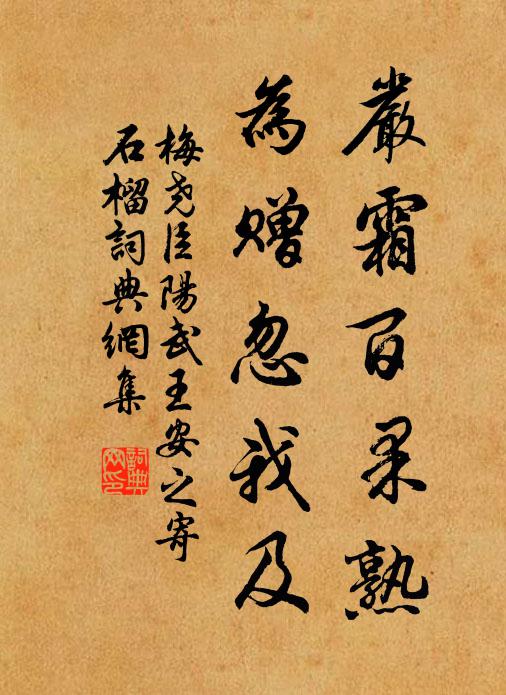 嚴霜百果熟
為贈忽我及
梅堯臣陽武王安之寄
石榴詞典網集
詞典網印